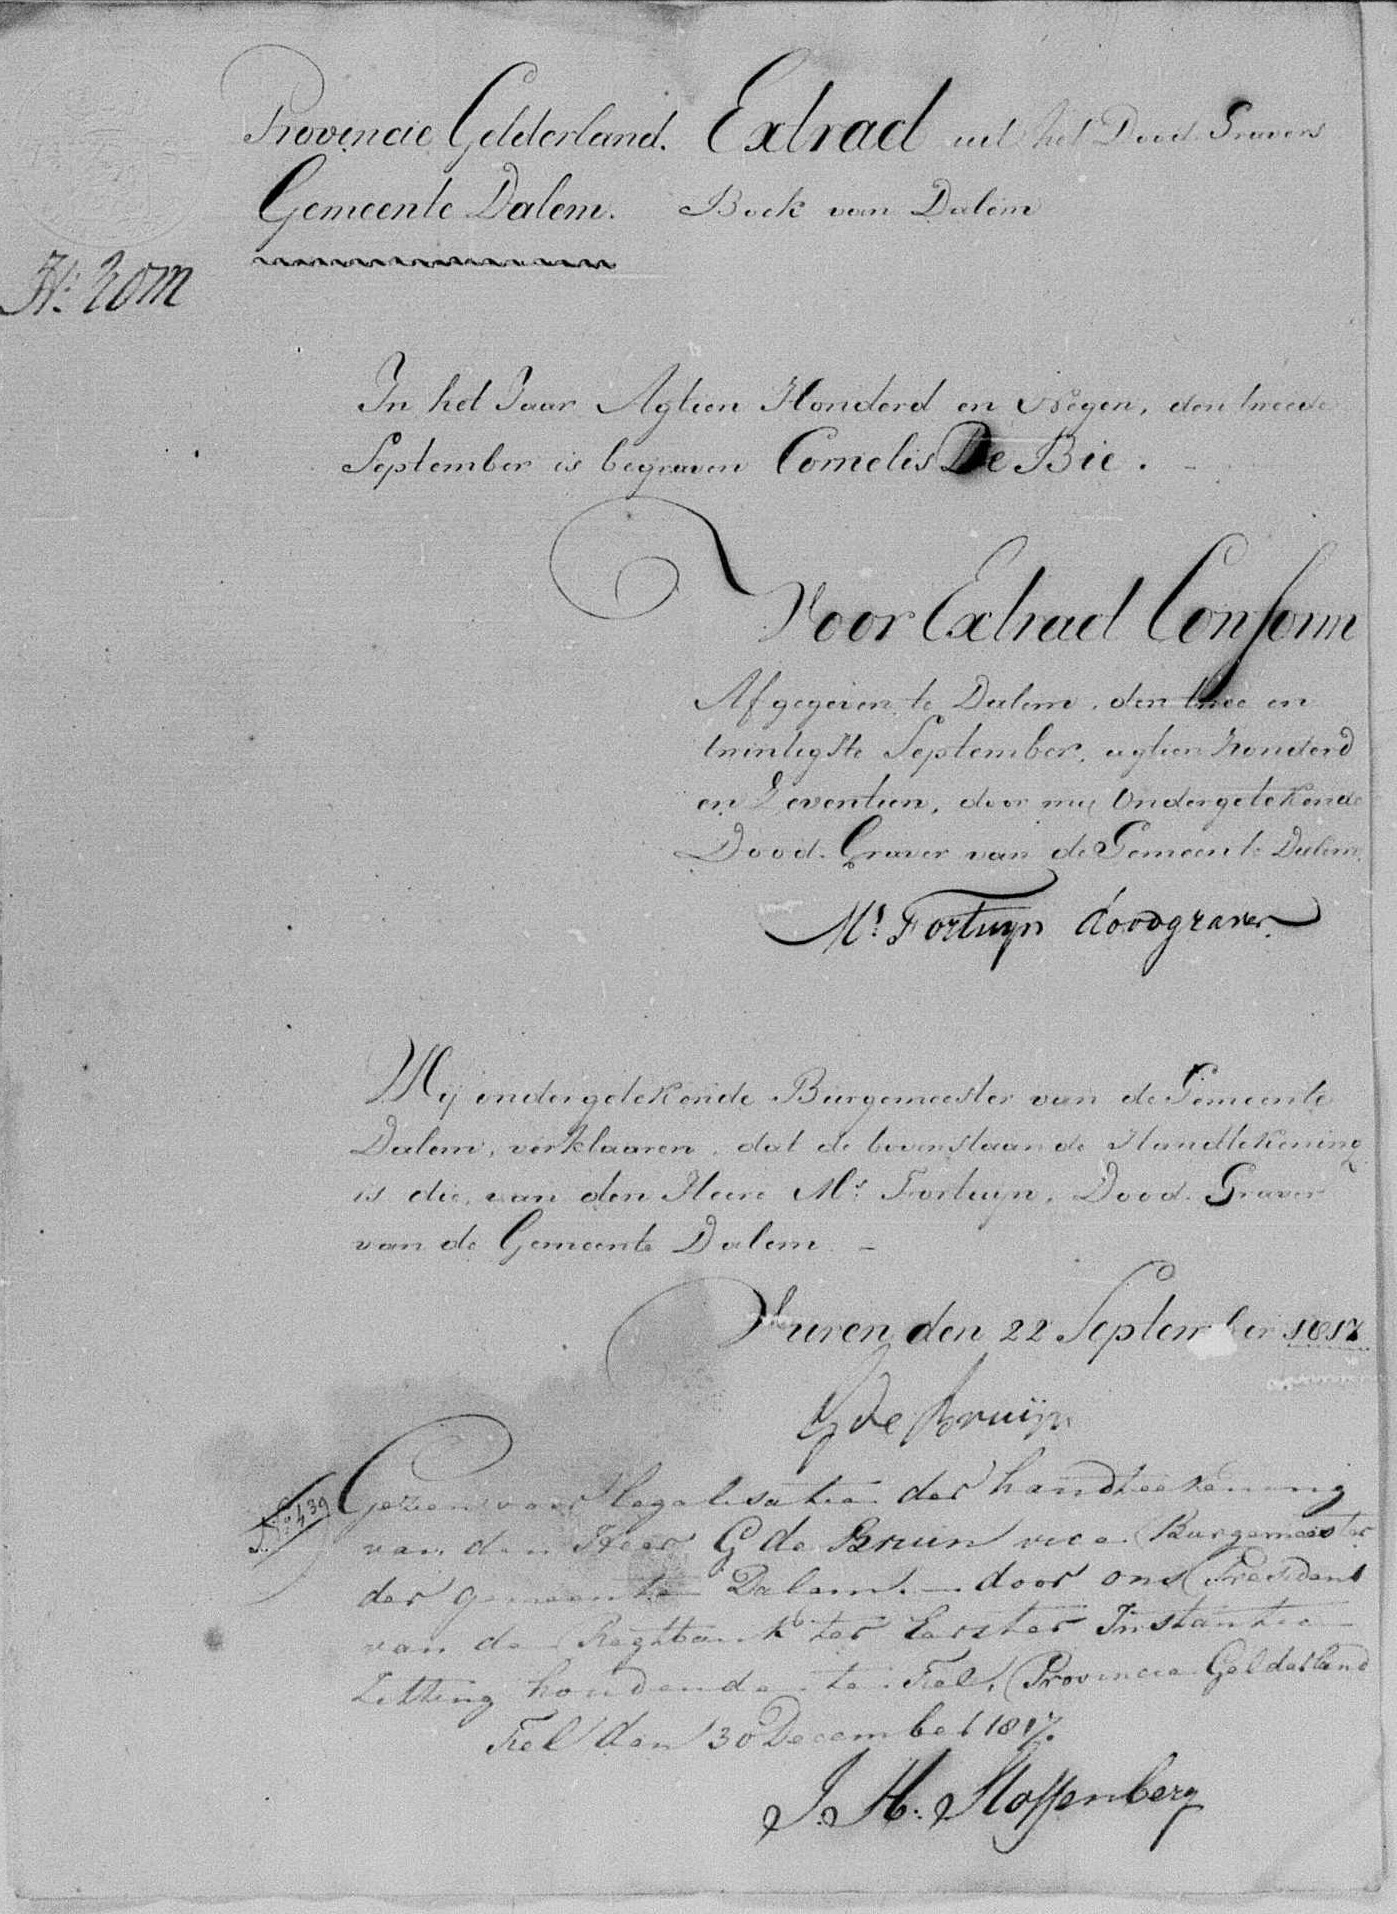 Provincie Gelderland. Extract uit het Dood Gravers
Gemeente Dalem. Boek van Dalem
In het Jaar Agtien Honderd en Negen, den tweede
September is begraven Cornelis De Bie.
Voor Extract Conform
Afgegeven te Dalem, den twee en
twintigste September, agtien honderd
en Zeventien, door mij Ondergetekende
Dood. Graver van de Gemeente Dalem,
Ms Fortuyn doodgraver.
Wij ondergetekende Burgemeester van de Gemeente
Dalem, verklaaren, dat de bovenstaande Handtekening
is die, van den Heere Ms Fortuijn, Dood. Graver
van de Gemeente Dalem. —
Vuren den 22 September 1817
G de Bruijn
No 439
Gezien voor legalisatie der handteekening
van den Heer G de Bruin vice Burgemeester
der gemeente Dalem. — door ons President
van de Regtbank ter Eerster Instantie
zitting houdende te Tiel, Provincie Gelderland
Tiel den 30 December 1817.
J. H.